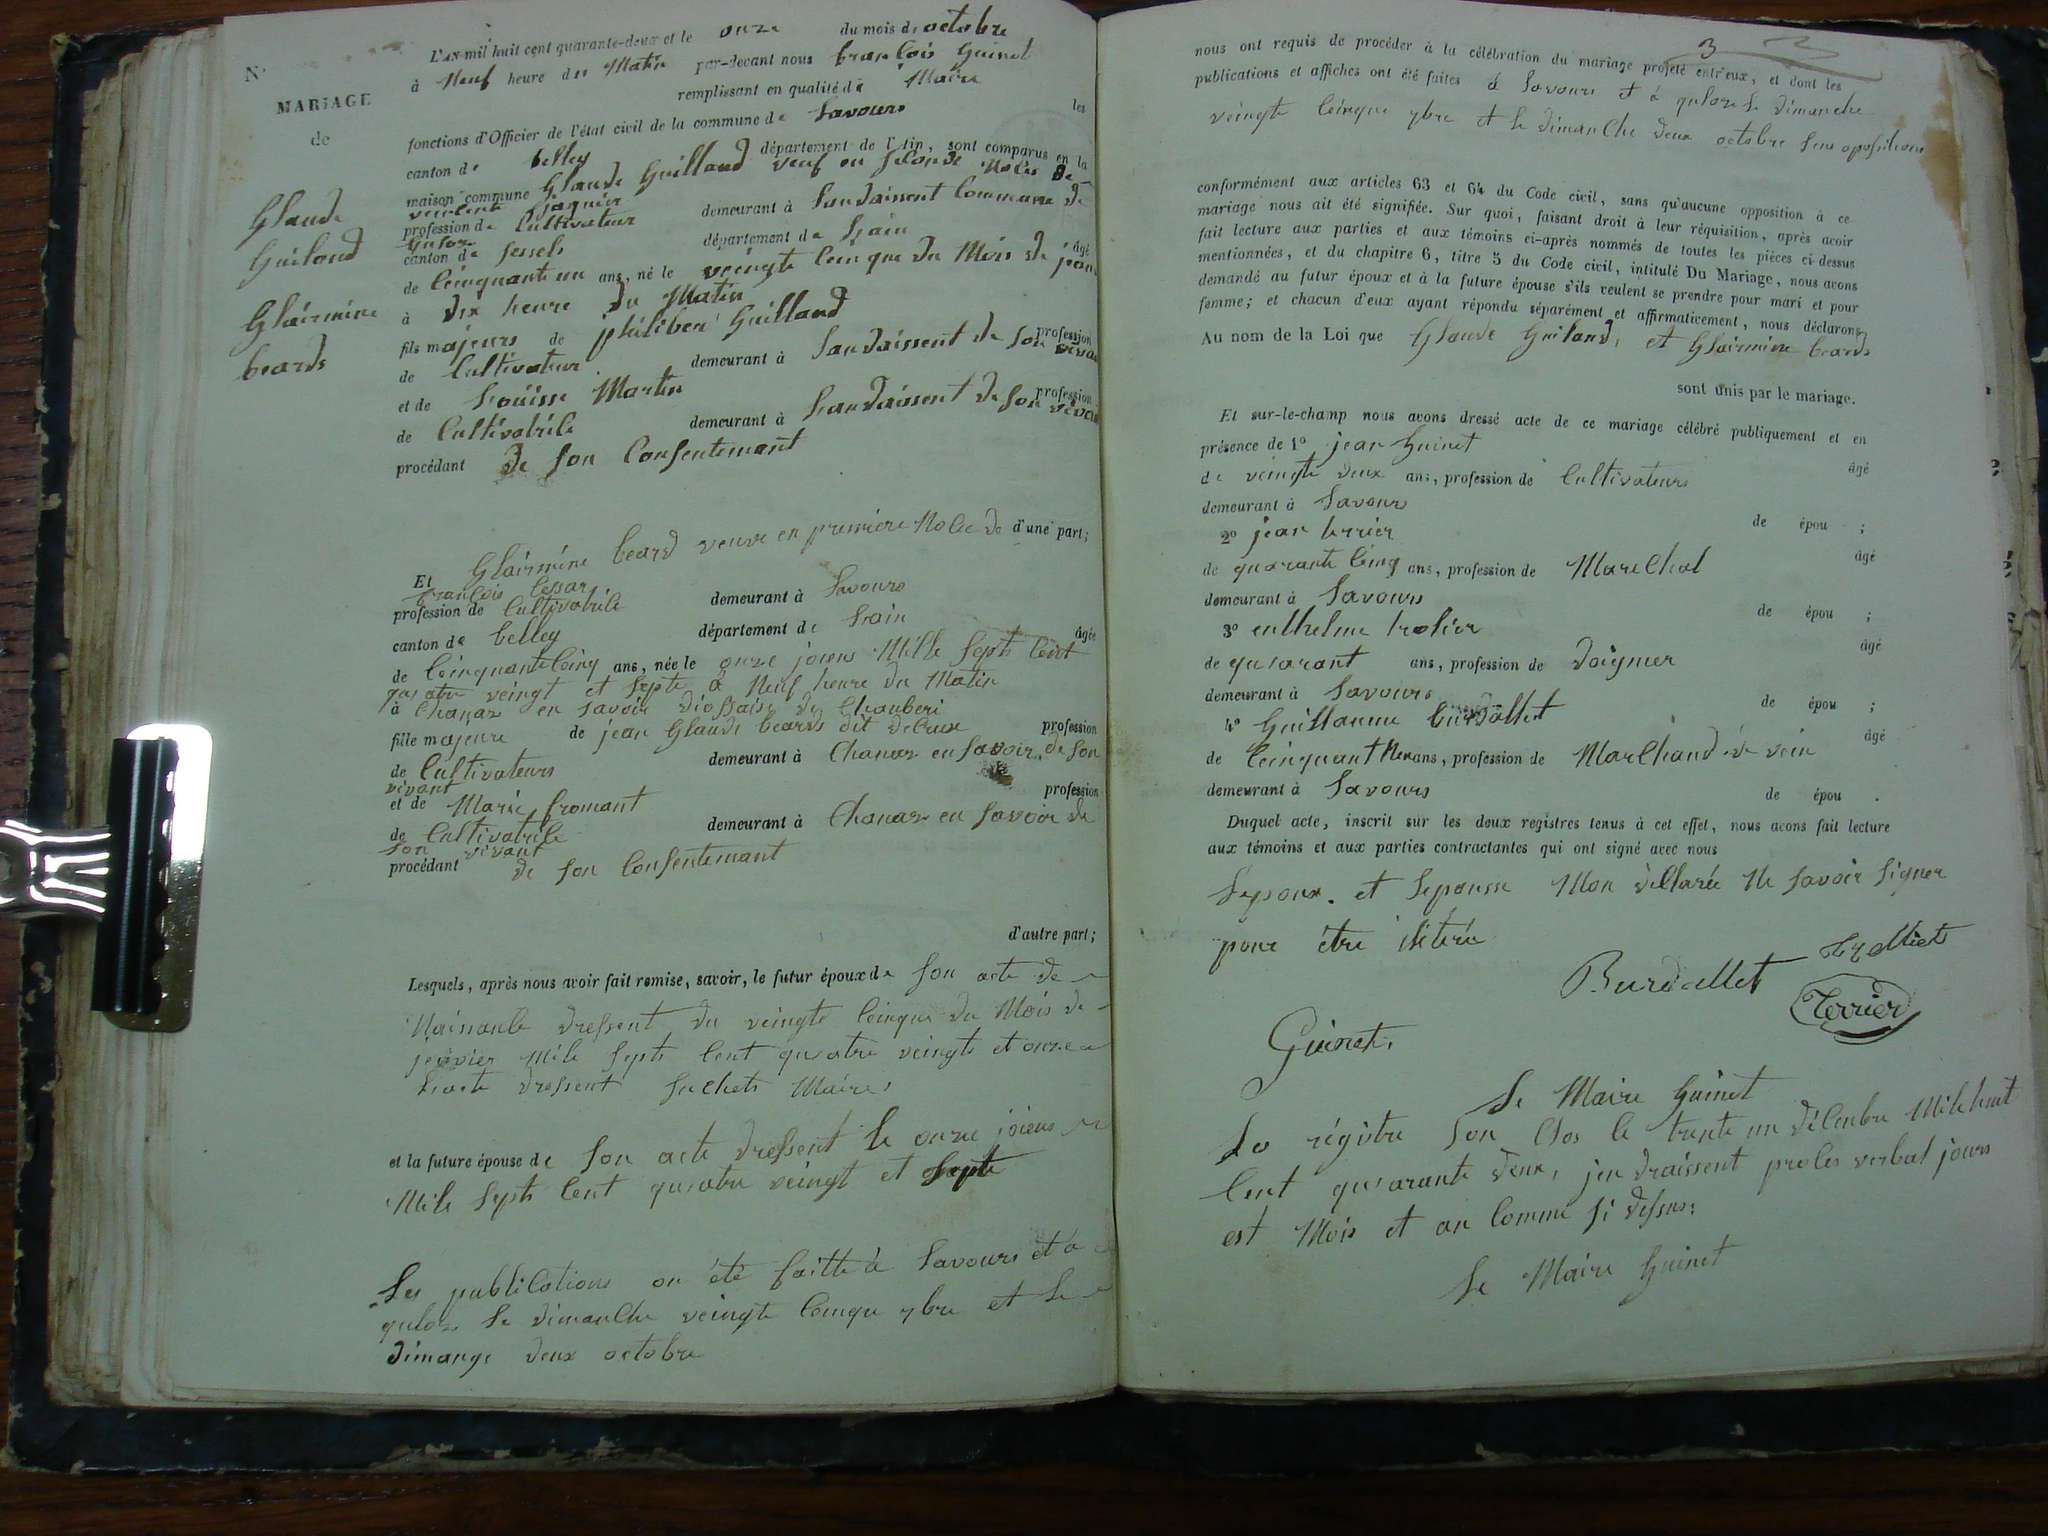 N°
MARIAGE
de
Glaude
Guiland
Glairmine
beards
L'AN mil huit cent quarante-deux et le onze du mois de octobre
à Neuf heure du Matin par-devant nous francois Guinet
remplissant en qualité de Maire les
fonctions d'Officier de l'état civil de la commune de Savours
canton de belley département de l'Ain, sont comparus en la
maison commune Glaude Guilland veuf en seconde Noces De
profession de Cultivateur demeurant à Landaissent Commune de
Culoz
canton de sessels département de Lain âgé
de Cinquant un ans, né le veingte Cinque du Mois de janv
à dix heure du Matin
fils majeurs de philiber Guilland profession
de Cultivateur demeurant à Landaissent de son vivan
et de Louisse Martin profession
de Cultivatrice demeurant à Landaissent de son vivan
procédant de son Consentemant
d'une part;
Et Glairmine beard veuve en premiere Noce de
francois Cessar
profession de Cultivatrice demeurant à Savours
canton de belley département de Lain âgée
de Cinquante Cinq ans, née le onze joiens Mille Septs Cent
quatre veingt et Septe à Neuf heure du Matin
à Chanaz en Savoir diossaise de Chamberi
fille majeure de jean Glaude beards dit delrue profession
de Cultivateurs demeurant à Chanaz en Savoir de son
vivant
et de Marie fromant profession
de Cultivatrice demeurant à Chanaz en Savoir de
son vivant
procédant de son Consentemant
d'autre part;
Lesquels, après nous avoir fait remise, savoir, le futur époux de son acte de
Naissance dressent du veingte Cinque du Mois de
jeavier Mile Septs Cent quatre veingts et onze
Lacte dressent Suchets Maire
et la future épouse de Son acte dressent le onze joiens
Mile Septs Cent quatre veingt et Septe
Les publications on été faitte à Savours et à
quloz Le dimanche veingte Cinque 7bre et Le
dimange deux octobre
3
nous ont requis de procéder à la célébration du mariage projeté entr'eux, et dont les
publications et affiches ont été faites à Savours et à quloz Le dimanche
veingte Cinque 7bre et Le dimanche deux octobre sens oposition
conformément aux articles 63 et 64 du Code civil, sans qu'aucune opposition à ce
mariage nous ait été signifiée. Sur quoi, faisant droit à leur réquisition, après avoir
fait lecture aux parties et aux témoins ci-après nommés de toutes les pièces ci-dessus
mentionnées, et du chapitre 6, titre 5 du Code civil, intitulé Du Mariage, nous avons
demandé au futur époux et à la future épouse s'ils veulent se prendre pour mari et pour
femme; et chacun d'eux ayant répondu séparément et affirmativement, nous déclarons
Au nom de la Loi que Glaude Guiland, et Glairmine beards
sont unis par le mariage.
Et sur-le-champ nous avons dressé acte de ce mariage célébré publiquement et en
présence de 1° jean Guinet âgé
de veingte deux ans, profession de Cultivateurs
demeurant à Savours de épou ;
2° jean terrier âgé
de quarante Cinq ans, profession de Marechal
demeurant à Savours de épou ;
3° enthelme trolier âgé
de quarant ans, profession de Doignier
demeurant à Savours de épou ;
4° Guillaume burdallet âgé
de Cinquant Neu ans, profession de Marchand de vein
demeurant à Savours de épou .
Duquel acte, inscrit sur les deux registres tenus à cet effet, nous avons fait lecture
aux témoins et aux parties contractantes qui ont signé avec nous
Lepoux. et Lepousse Mon déllarée Ne savoir Signer
pour être ilitérée
Burdallet
Terrier
Guinet.
Le Maire Guinet
Lo régistre Son Clos le trente un décembre Mile huit
Cent quarante deux, jen draissent proces verbal jours
est Mois et an Comme Si dessus:
Le Maire Guinet